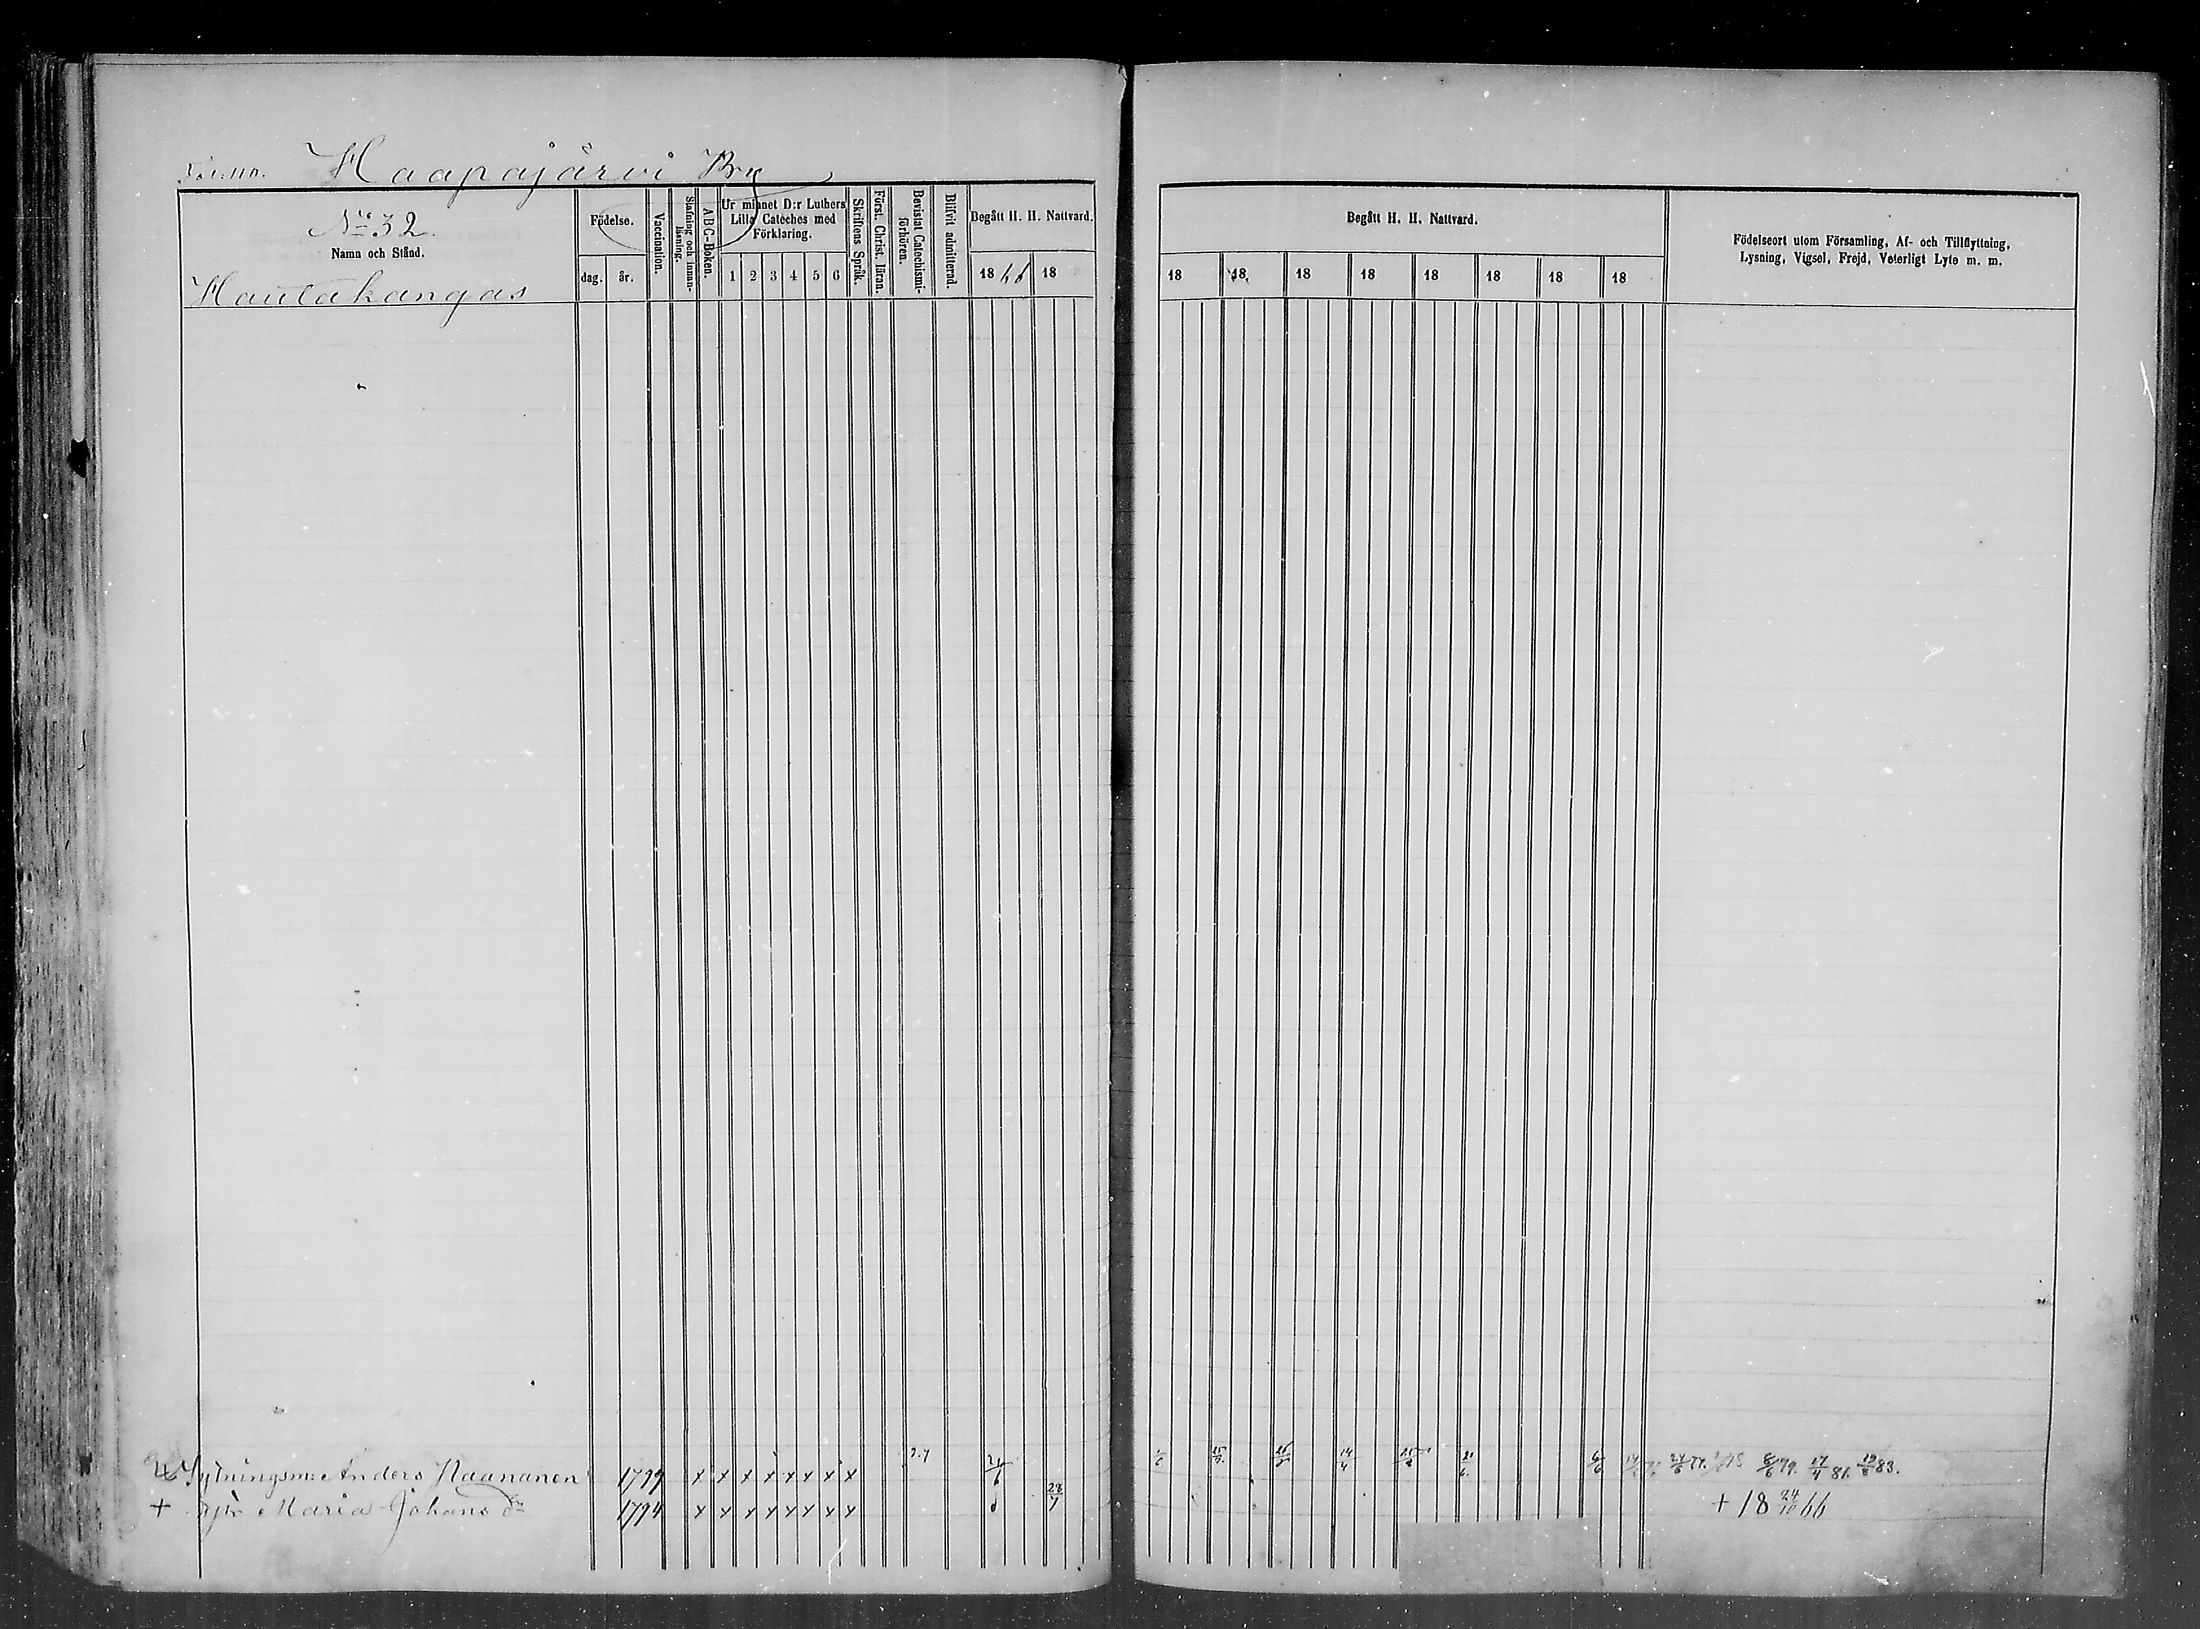 Haapajärvi By
No 32.
Namn och Stånd.
Hautakangas
Födelse.
dag. år.
Vaccination.
Stafning och innan-läsning.
A B C-Boken.
Ur minnet D:r Luthers Lilla Catéches med Förklaring.
1 2 3 4 5 6
Skriftens Språk.
Först. Christ. läran.
Bevistat Catechismi-förhören.
Blifvit admitterad.
Begått H. H. Nattvard.
18 66 18
Begått H. H. Nattvard.
18 18 18 18 18 18 18 18
Födelseort utom Församling, Af- och Tillflyttning,
Lysning, Vigsel, Frejd, Veterligt Lyte m. m.
Sytningsm: Anders Haananen 1799 x x x x x x x x 17/4 81. 83.
+ Maria Johans dr 1794 x x x x x x x x 28/7 + 18 24/10 66